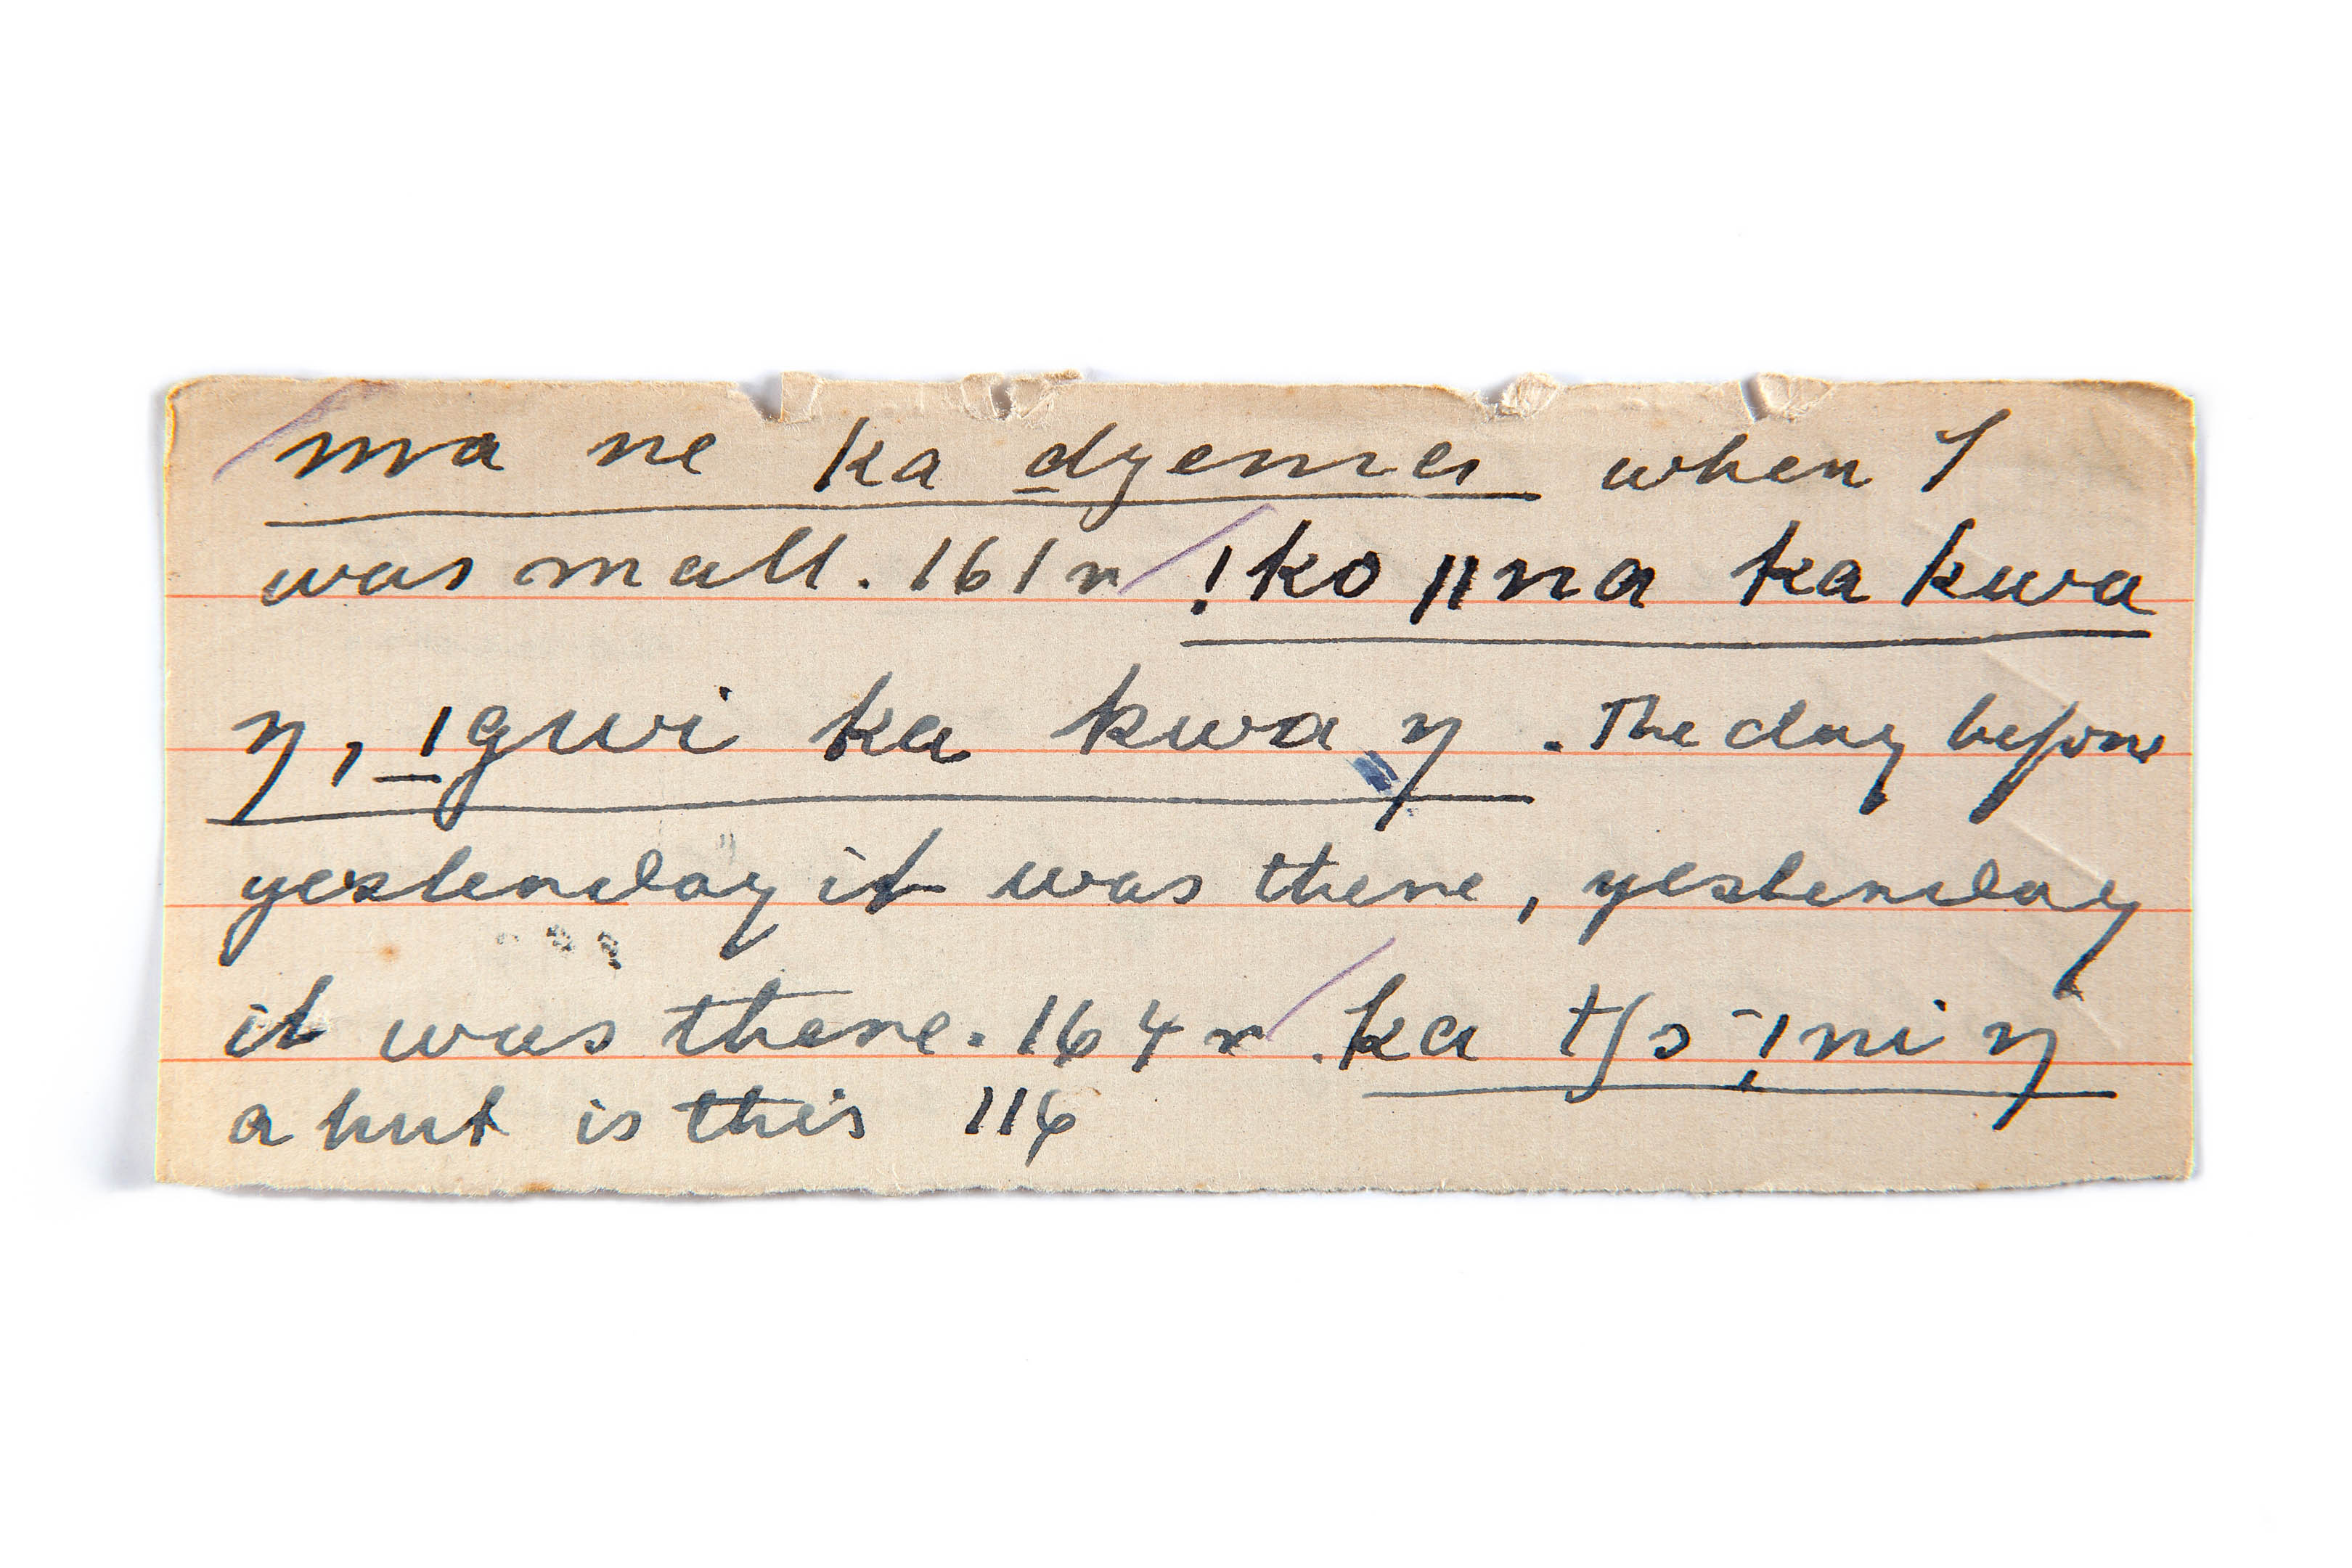 ma ne ka dzemer when I
was mall. 161 r !ko ǁna ka kwa
ŋ, ǀgwi ka kwa ŋ. The day before
yesterday it was there, yesterday
it was there. 164 r. ka tʃɔ-ǃni ŋ
a hut is this 116